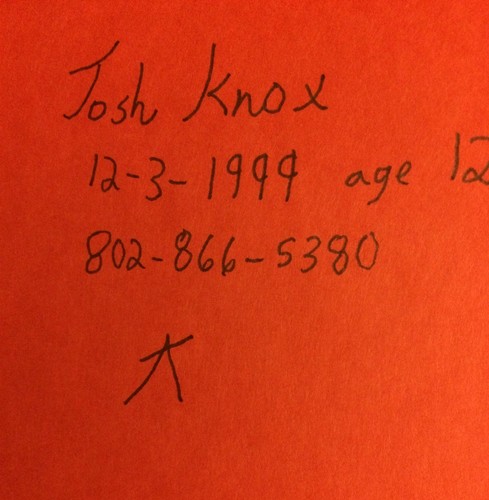 Josh Knox
12-3-1999 age 12
802-866-5380
大